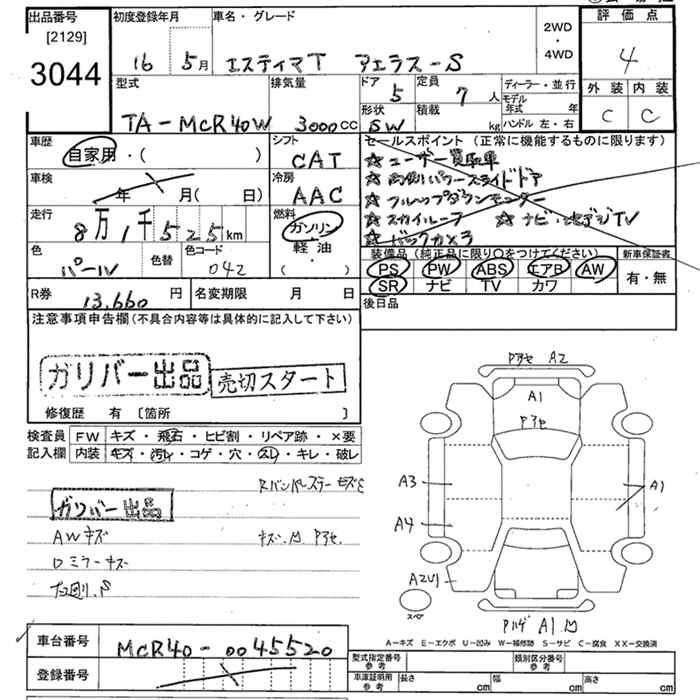 出品番号 初度登録年月 車名・グレード 2WD・4WD 評価点
[2129]
3044 16 5月 エスティマT アエラス-S 4
型式 排気量 ドア 5 定員 7人 ディーラー・並行 外装 内装
モデル年式 年 C C
TA-MCR40W 3000cc 形状 SW 積載 kg ハンドル 左・右
車歴 シフト セールスポイント(正常に機能するものに限ります)
自家用・( ) CAT ☆ユーザー買取車
車検 冷房 ☆両側パワースライドドア
年 月( 日) AAC ☆フルップダウンモニター
走行 燃料 ☆スカイルーフ ☆ナビ・地デジTV
8万1千525km ガソリン ☆バックカメラ
色 色替 色コード 軽油 装備品(純正品に限り○をつけてください) 新車保証書
パール 042 ( ・ ) PS PW ABS エアB AW 有・無
R券 13,660円 名変期限 月 日 SR ナビ TV カワ
注意事項申告欄(不具合内容等は具体的に記入して下さい) 後日品
ガリバー出品 売切スタート
修復歴 有 〔箇所 〕
検査員 FW キズ・飛石・ヒビ割・リペア跡・×要
記入欄 内装 キズ・汚レ・コゲ・穴・スレ・キレ・破レ
ガリバー出品
AWキズ
ロミラーキズ
P アセ A2
A1
P アセ
A3 A1
A4
A2U1
スペア
A1 凹
A−キズ E−エクボ U−凹み W−補修跡 S−サビ C−腐食 XX−交換済
車台番号 MCR40-0045520
登録番号
型式指定番号 参考 類別区分番号 参考
車庫証明用 参考 長さ cm 幅 cm 高さ cm